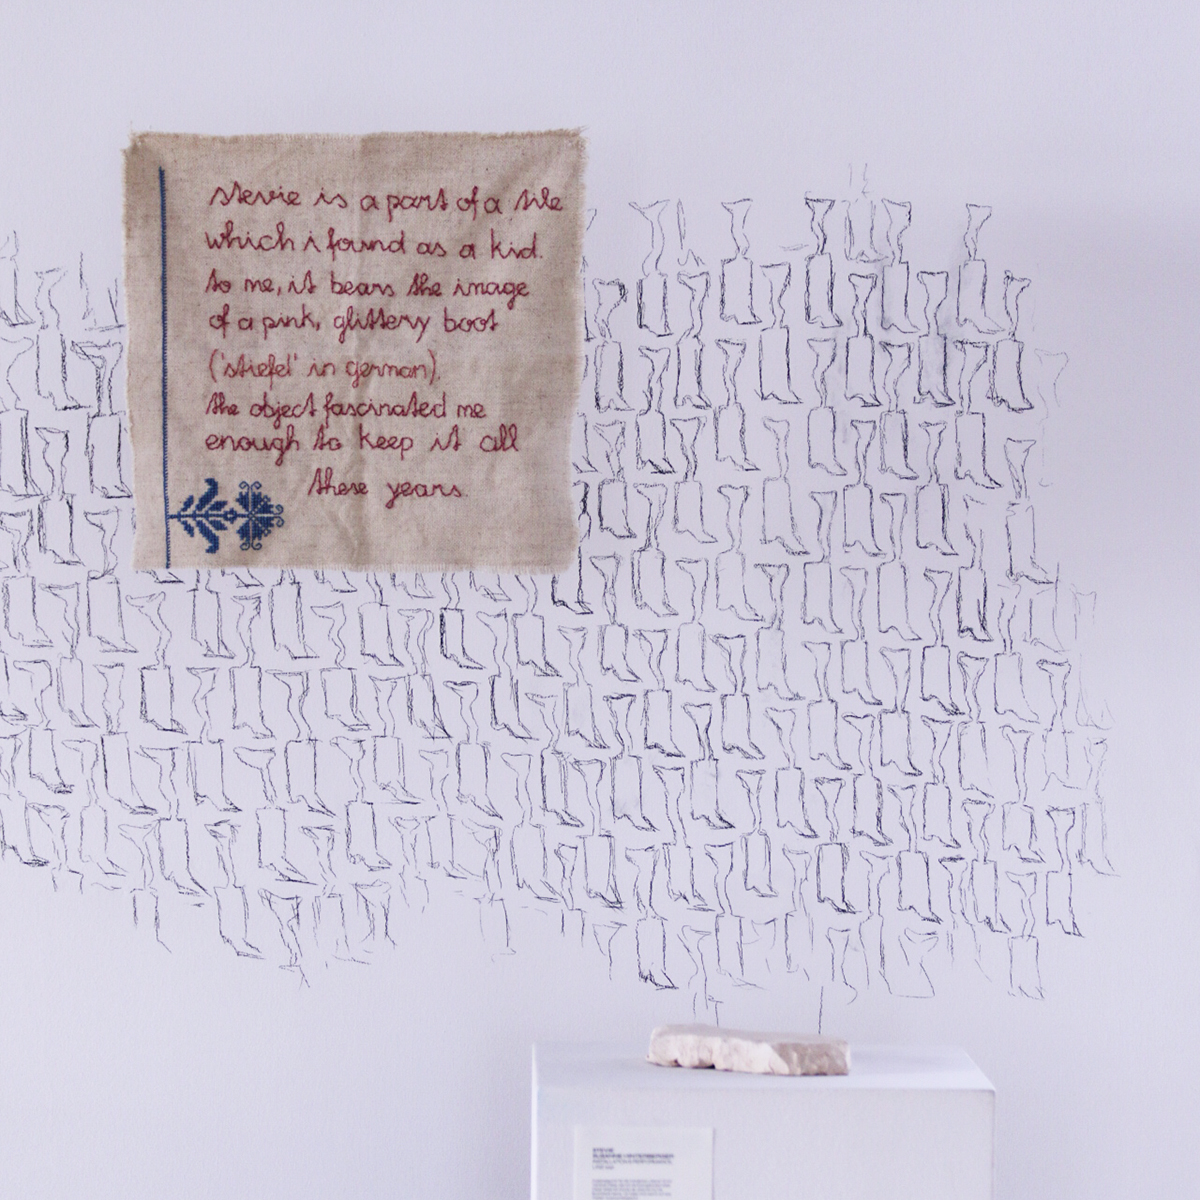 stevie is a part of a tile
which i found as a kid.
to me, it bears the image
of a pink, glittery boot
('stiefel' in german).
the object fascinated me
enough to keep it all
these years.
STEVIE